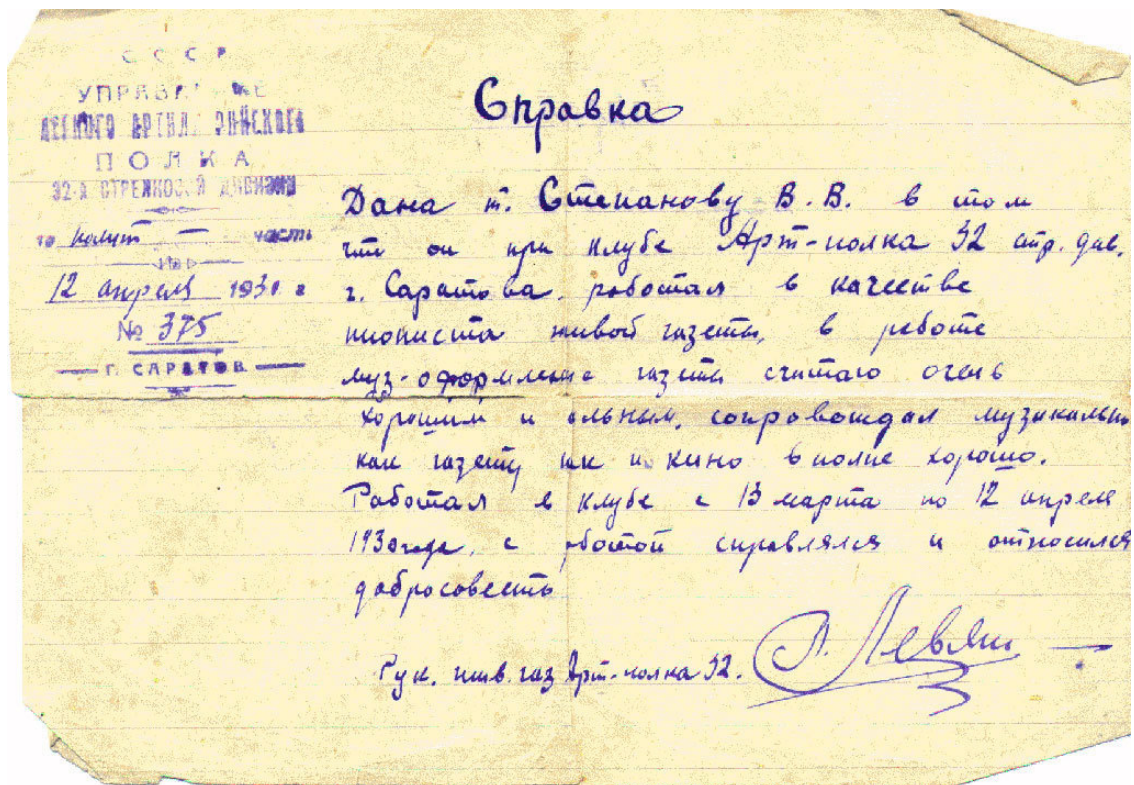 СССР
УПРАВЛЕНИЕ
ЛЕГКОГО АРТИЛЛЕРИЙСКОГО
ПОЛКА
32-й СТРЕЛКОВОЙ ДИВИЗИИ
по полит — часть
12 апреля 1930 г
№ 375
Г. САРАТОВ
Справка
Дана т. Степанову В. В. в том
что он при клубе Арт-полка 32 стр. див.
г. Саратова, работал в качестве
пиониста живой газеты, в работе
муз-оформление газеты считаю очень
хорошим и сльным, сопровождал музикально
как газету так и кино вполне хорошо.
Работал в клубе с 13 марта по 12 апреля
1930 года, с работой справлялся и относился
добросовестно
Рук. жив. газ Арт-полка 32.